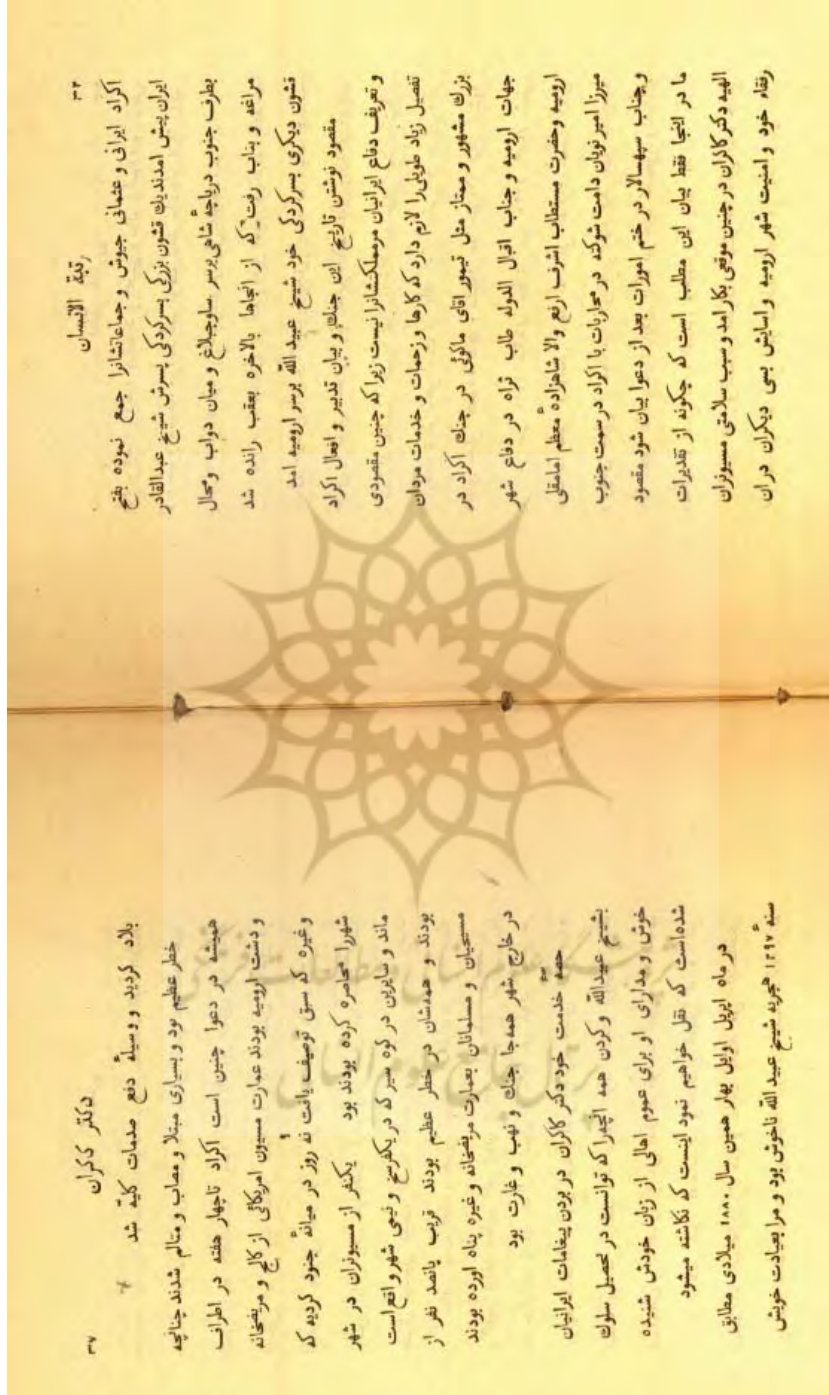 ۳۴
رتبة الانسان
اکراد ایرانی و عثمانی جیوش و جماعاتشانرا جمع نموده بفتح
ایران پیش امدند یك قشون بزرکی بسرکردکی پسرش شیخ عبدالقادر
بطرف جنوب دریاچهٔ شاهی برسر ساوجبلاغ و میان دواب و محال
مراغه و بناب رفت که از انجاها بالاخره بعقب رانده شد
قشون دیکری بسرکردکی خود شیخ عبید الله برسر ارومیه امد
مقصود نوشتن تاریخ این جنك و بیان تدبیر و افعال اکراد
و تعریف دفاع ایرانیان مرمملکتشانرا نیست زیرا که چنین مقصودی
تفصیل زیاد طویلی را لازم دارد که کارها و زحمات و خدمات مردان
بزرك مشهور و ممتاز مثل تیمور اقای ماکوئی در جنك اکراد در
جهات ارومیه و جناب اقبال الدوله طاب ثراه در دفاع شهر
ارومیه وحضرت مستطاب اشرف ارفع والا شاهزادهٔ معظم امامقلی
میرزا امیر نویان دامت شوکته در محاربات با اکراد در سمت جنوب
و جناب سپهسالار در ختم امورات بعد از دعوا بیان شود مقصود
ما در اینجا فقط بیان این مطلب است که چکونه از تقدیرات
الهیه دکتر کاکران در چنین موقعی بکار امد و سبب سلامتی مسیونران
رفقاء خود و امنیت شهر ارومیه و اسایش بسی دیکران در ان
۳۷
دکتر کاکران
بلاد کردید و وسیلهٔ دفع صدمات کلیه شد
خطر عظیم بود و بسیاری مبتلا و مصاب و متالم شدند چنانچه
همیشه در دعوا چنین است اکراد تاچهار هفته در اطراف
و دشت ارومیه بودند عمارت مسیون امریکائی از کالج و مریضخانه
و غیره که سبق توصیف یافت نه روز در میانهٔ جنود کردیه که
شهررا محاصره کرده بودند بود یکنفر از مسیونران در شهر
ماند و سایرین در کوه سیر که در یکفرسخ و نیمی شهر واقع است
بودند و همه‌شان در خطر عظیم بودند قریب پانصد نفر از
مسیحیان و مسلمانان بعمارت مریضخانه و غیره پناه اورده بودند
در خارج شهر همه‌جا جنك و نهب و غارت بود
حصهٔ خدمت خود دکتر کاکران در بردن پیغامات ایرانیان
بشیخ عبیدالله و کردن همه انچه‌را که توانست در تحصیل سلوك
خوش و مدارای او برای عموم اهالی از زبان خودش شنیده
شده‌است که نقل خواهیم نمود اینست که نکاشته میشود
در ماه اپریل اوایل بهار همین سال ۱۸۸۰ میلادی مطابق
سنهٔ ۱۲۹۷ هجریه شیخ عبید الله ناخوش بود و مرا بعیادت خویش